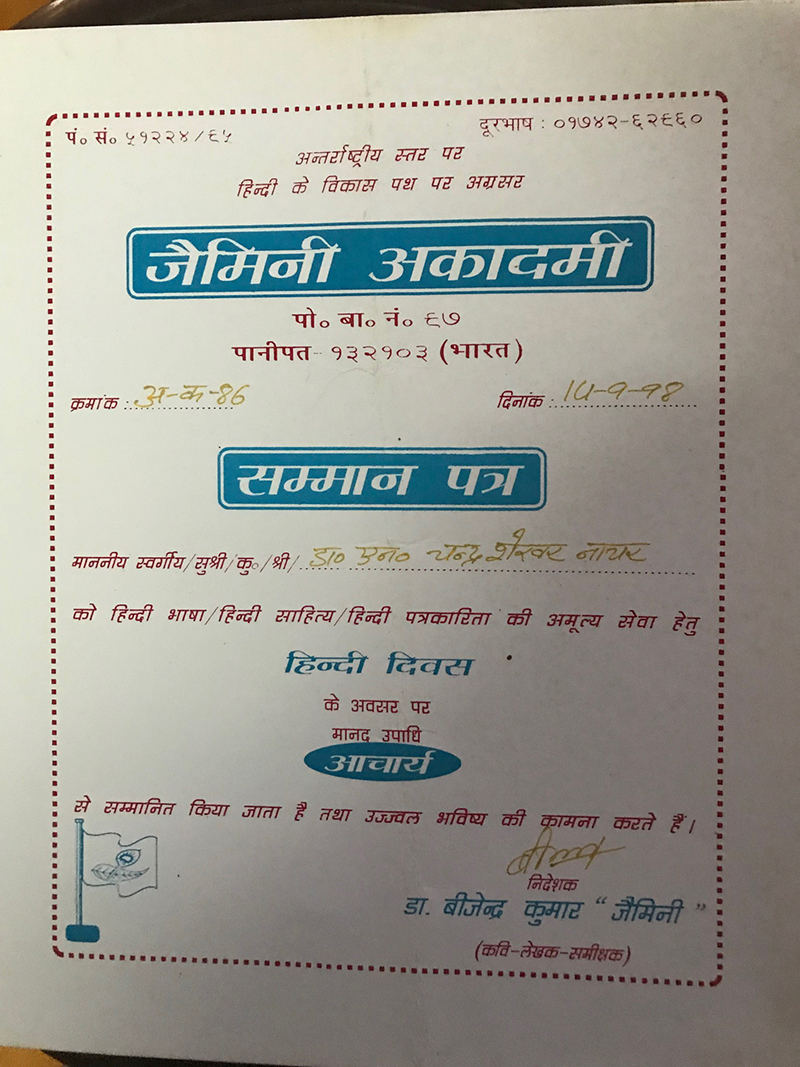 पं० सं० ५१२२४/९५
दूरभाष : ०१७४२-६२९६०
अन्तर्राष्ट्रीय स्तर पर
हिन्दी के विकास पथ पर अग्रसर
जैमिनी अकादमी
पो० बा० नं० ९७
पानीपत-१३२१०३ (भारत)
क्रमांक : अ-क-86
दिनांक : 14-9-98
सम्मान पत्र
माननीय स्वर्गीय/सुश्री/कु०/श्री/ डा० एन० चन्द्रशेखर नायर
को हिन्दी भाषा/हिन्दी साहित्य/हिन्दी पत्रकारिता की अमूल्य सेवा हेतु
हिन्दी दिवस
के अवसर पर
मानद उपाधि
आचार्य
से सम्मानित किया जाता है तथा उज्ज्वल भविष्य की कामना करते हैं।
निदेशक
डा. बीजेन्द्र कुमार “जैमिनी”
(कवि-लेखक-समीक्षक)